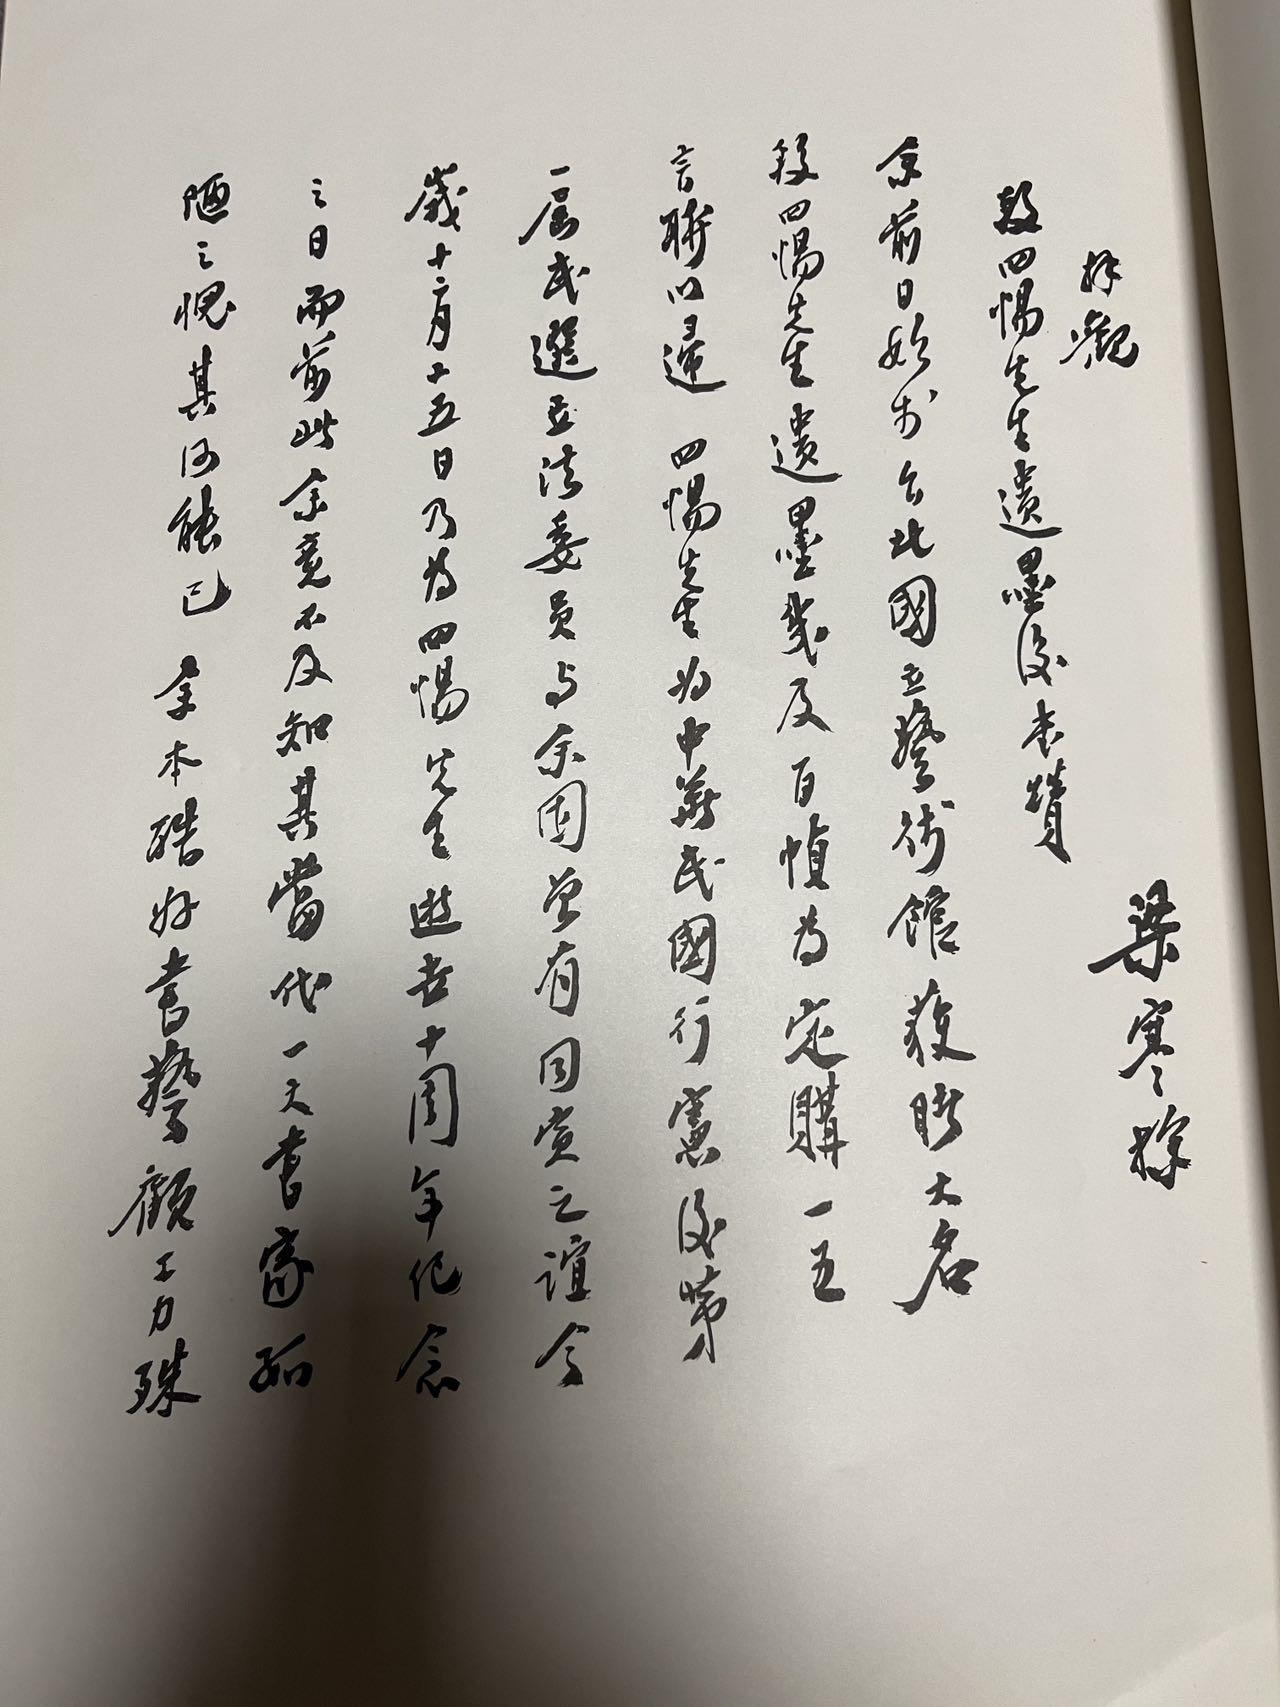 拜觀
段四惕先生遺墨後書贊
梁寒操
余前日始於台北國立藝術館獲睹大名
段四惕先生遺墨幾及百幀為定購一五
言聯以歸 四惕先生為中華民國行憲後第
一屆民選立法委員與余固曾有同寅之誼今
歲十二月十五日乃為四惕先生逝世十周年紀念
之日而前此余竟不及知其當代一大書家孤
陋之愧其何能已 余本酷好書藝顧工力殊